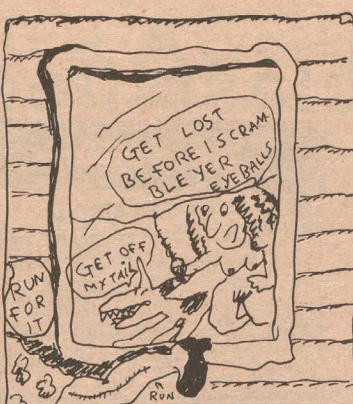 GET LOST
BEFORE I SCRAM-
BLE YER
EYEBALLS
GET OFF
MY TAIL
RUN
FOR
IT
RUN